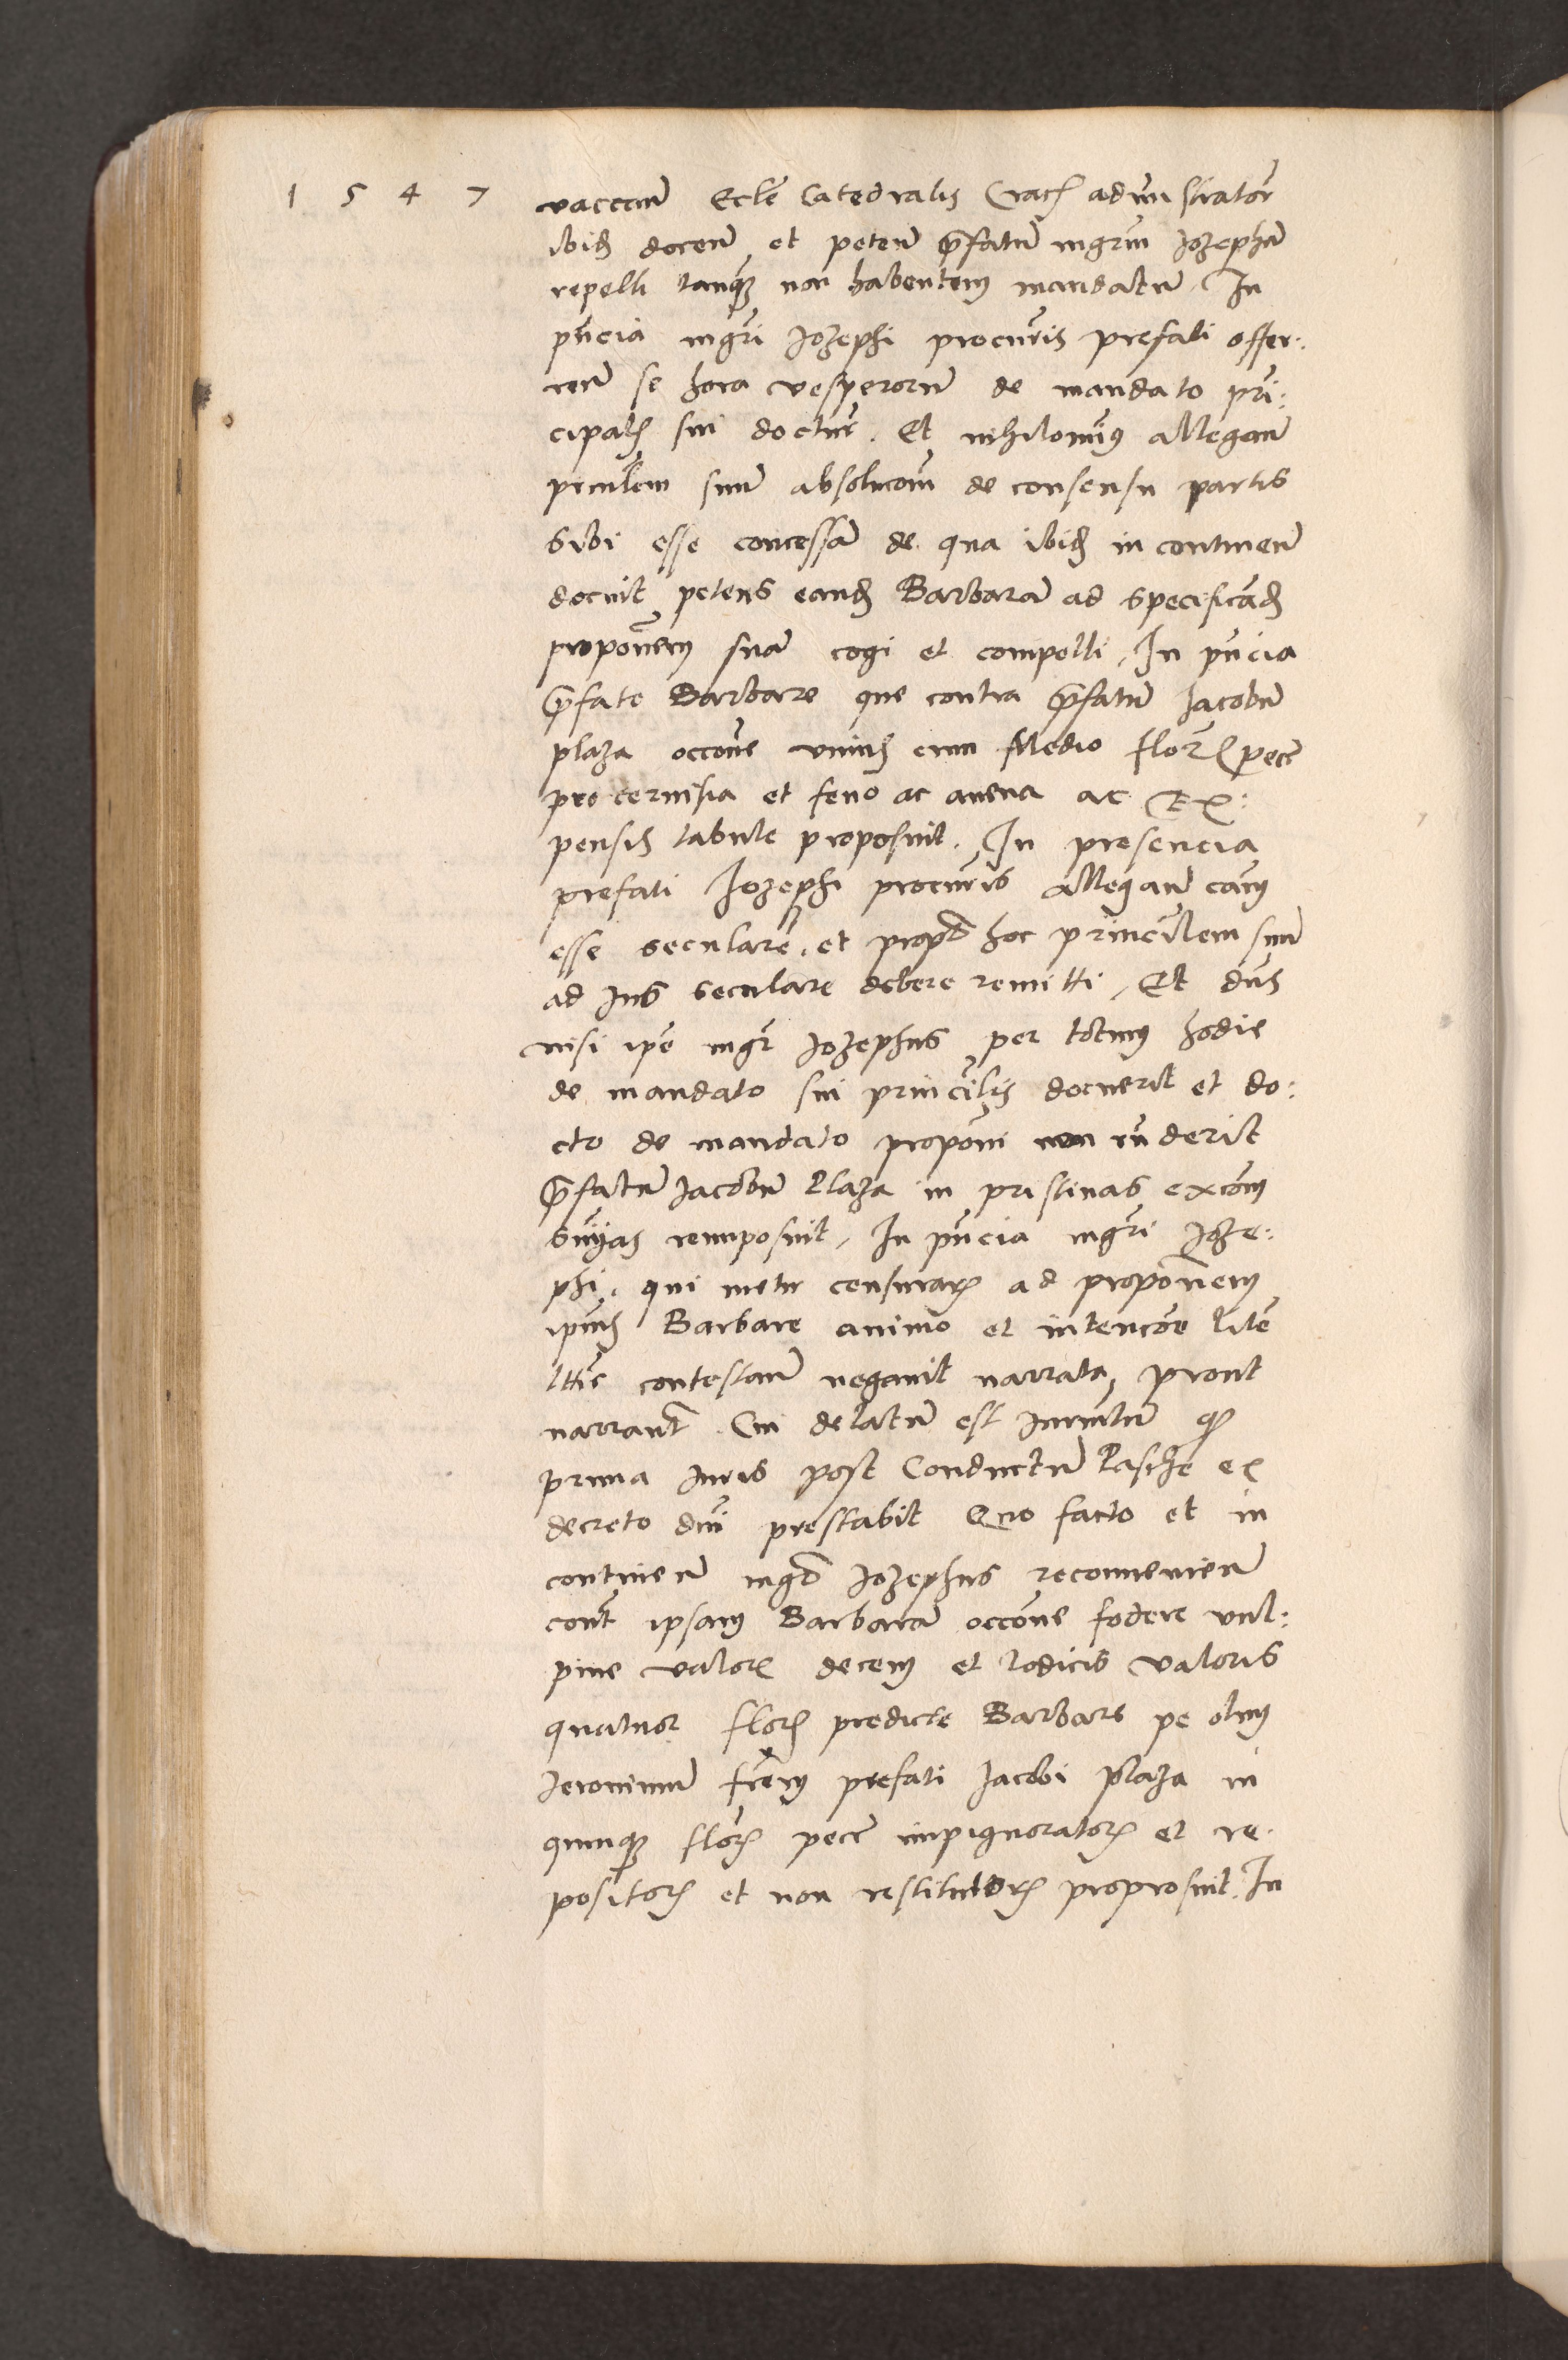 1 5 4 7
vaccen̄ Ecl̄e Catedralis Crac̄ administrator̄
ibid̄ docen̄ et peten̄ p̄fatū mgr̄m Jozephū
repelli tanq̄ non habentem mandatū, In
pn̄cia mgr̄i Jozephi procur̄is prefati offer:
ren̄ se hora vesperorū de mandato pri:
cipal̄ sui doctur̄. Et nihilomin9 allegan̄
prin̄lem suū absolucōm de consensu partis
sibi esse concessā de qua ibid̄ in continen̄
docuit petens eand̄ Barbarā ad specificād̄
propōnem suā cogi et compelli, In pn̄cia
p̄fate Barbare que contra p̄fatū Jacobū
plaza occōne vnius cum Medio flor̄ pec̄
pro cervisia et feno ac avena ac Ex:
pensis tabule proposuit. In presencia
prefati Jozephi procur̄is allegan̄ cām
esse secularē. et propt̄ hoc princīlem suū
ad Jus seculare debere remitti, Et dn̄s
nisi ip̄e mgr̄ Jozephus per totum hodie
de mandato sui princīlis docuerit et do:
cto de mandato propōni non rn̄derit
p̄fatū Jacobū Plaza in pristinas excōm
sn̄ias reimposuit, In pn̄cia mgr̄i Joze:
phi. qui metu censurar̄ ad propōnem
ipius Barbare animo et intencōe litē
ltt̄ie contestan̄ negavit narrata, prout
narrant̄. Cui delatū est iuram̄tū q̄
prima iuris post Conductū Pasche ex
decreto dn̄i prestabit Quo facto et in
continen̄ mgr̄ Jozephus reconvenien̄
cont̄ ipsam Barbarā occōne fodere vul:
pine valor̄ decem et lodicis valoris
quatuor flor̄ predicte Barbare pe olim
Jeronimū fr̄em prefati Jacobi plaza in
quinq̄ flor̄ pec̄ impignorator̄ et re.
positor̄ et non restitutor̄ proprosuit. In